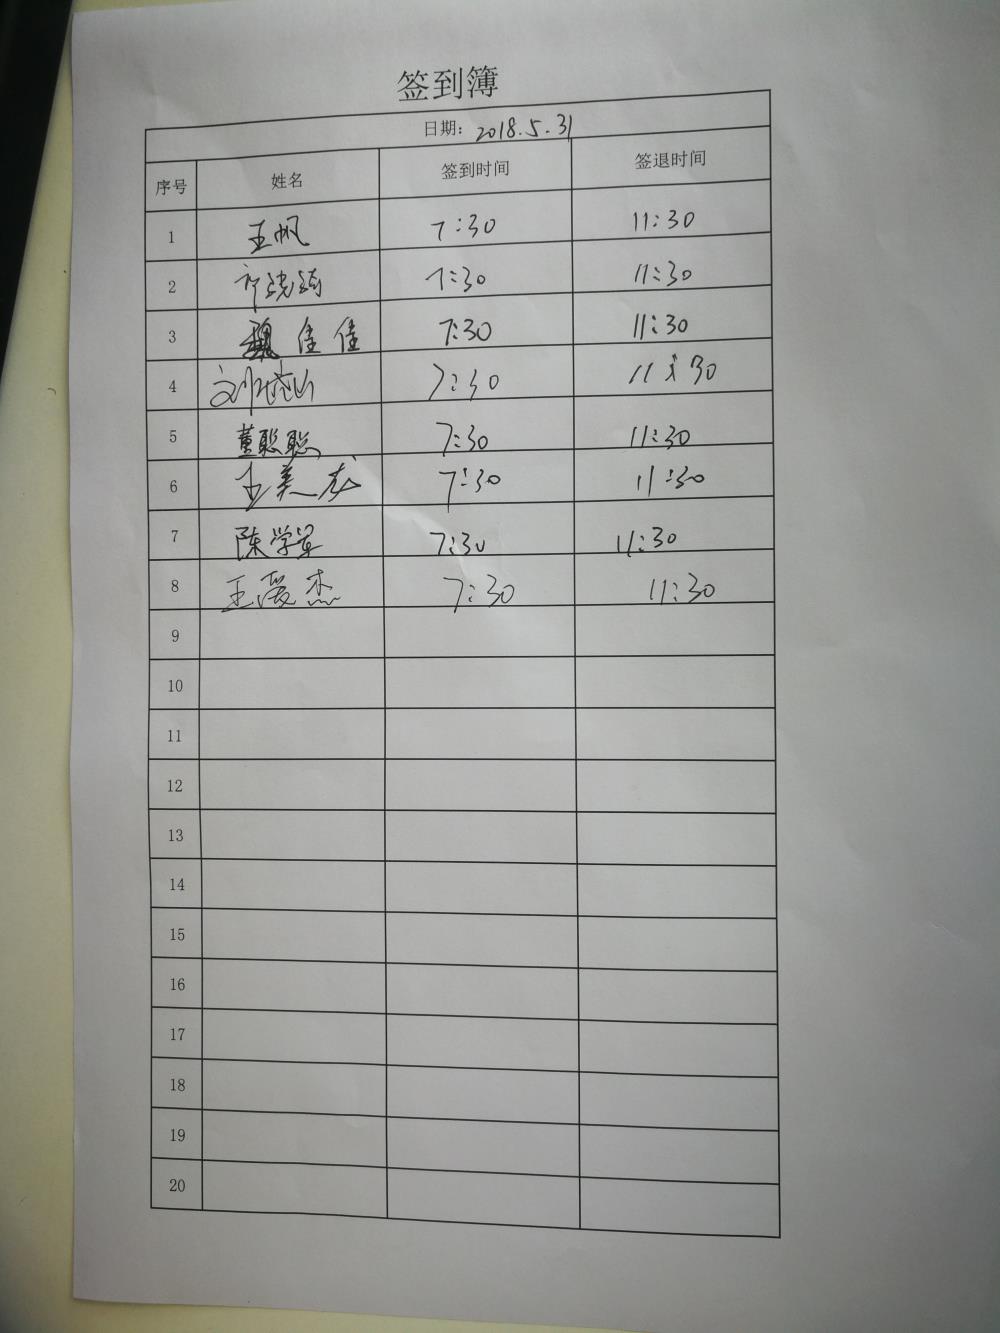 签到簿
日期: 2018.5.31
序号 姓名 签到时间 签退时间
1 王帆 7:30 11:30
2 7:30 11:30
3 魏佳佳 7:30 11:30
4 刘 7:30 11:30
5 董聪聪 7:30 11:30
6 王美 7:30 11:30
7 陈学军 7:30 11:30
8 王爱杰 7:30 11:30
9
10
11
12
13
14
15
16
17
18
19
20